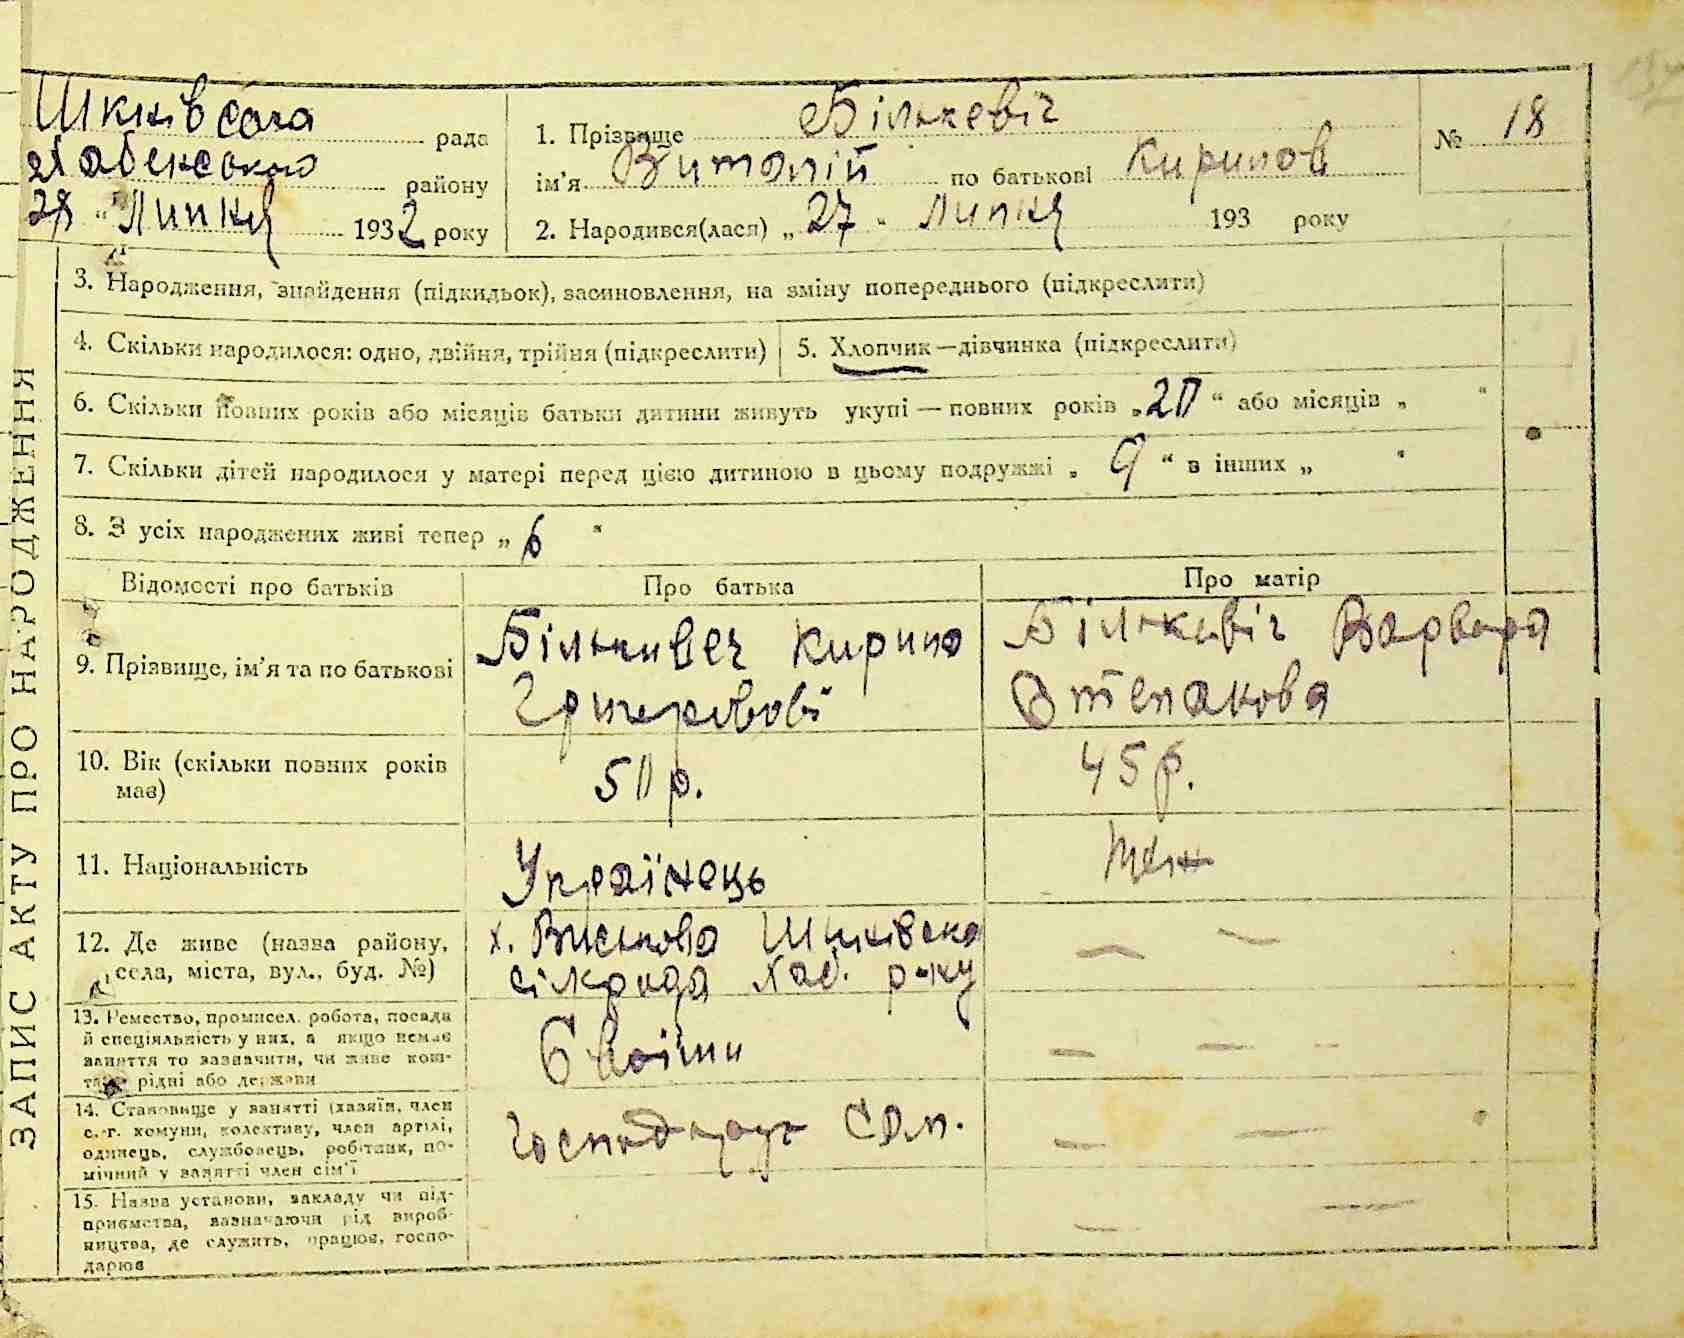 Шкнівсока рада
Хабенського району
28 „ Липня 1932 року
1. Прізвище Бількевіч
ім'я Витолій по батькові Кирилов
2. Народився(лася) „ 27 " Липня 193 року
№ 18
ЗАПИС АКТУ ПРО НАРОДЖЕННЯ
3. Народження, знайдення (підкидьок), засиновлення, на зміну попереднього (підкреслити)
4. Скільки народилося: одно, двійня, трійня (підкреслити)
5. Хлопчик—дівчинка (підкреслити)
6. Скільки повних років або місяців батьки дитини живуть укупі — повних років „20“ або місяців „ “
7. Скільки дітей народилося у матері перед цією дитиною в цьому подружжі „ 9 “ в інших „ “
8. З усіх народжених живі тепер „ 6 “
Відомості про батьків
Про батька
Про матір
9. Прізвище, ім'я та по батькові
Бількивеч Кирило
Григоровові
Бількевіч Варвара
Степакова
10. Вік (скільки повних років
має)
50 р.
45 р.
11. Національність
Українець
Теж
12. Де живе (назва району,
села, міста, вул., буд. №)
х. Виськово Шкнівска
сілрада Хаб. р-ну
13. Ремество, промисел. робота, посада
й спеціяльність у них, а якщо немає
заняття то зазначити, чи живе кош-
том рідні або держави
Своіми
14. Становище у занятті (хазяїн, член
с.-г. комуни, колективу, член артілі,
одинець, службовець, робітник, по-
мічний у занятті член сім'ї
Господарує Сам.
15. Назва установи, закладу чи під-
приємства, зазначаючи рід вироб-
ництва, де служить, працює, госпо-
дарює